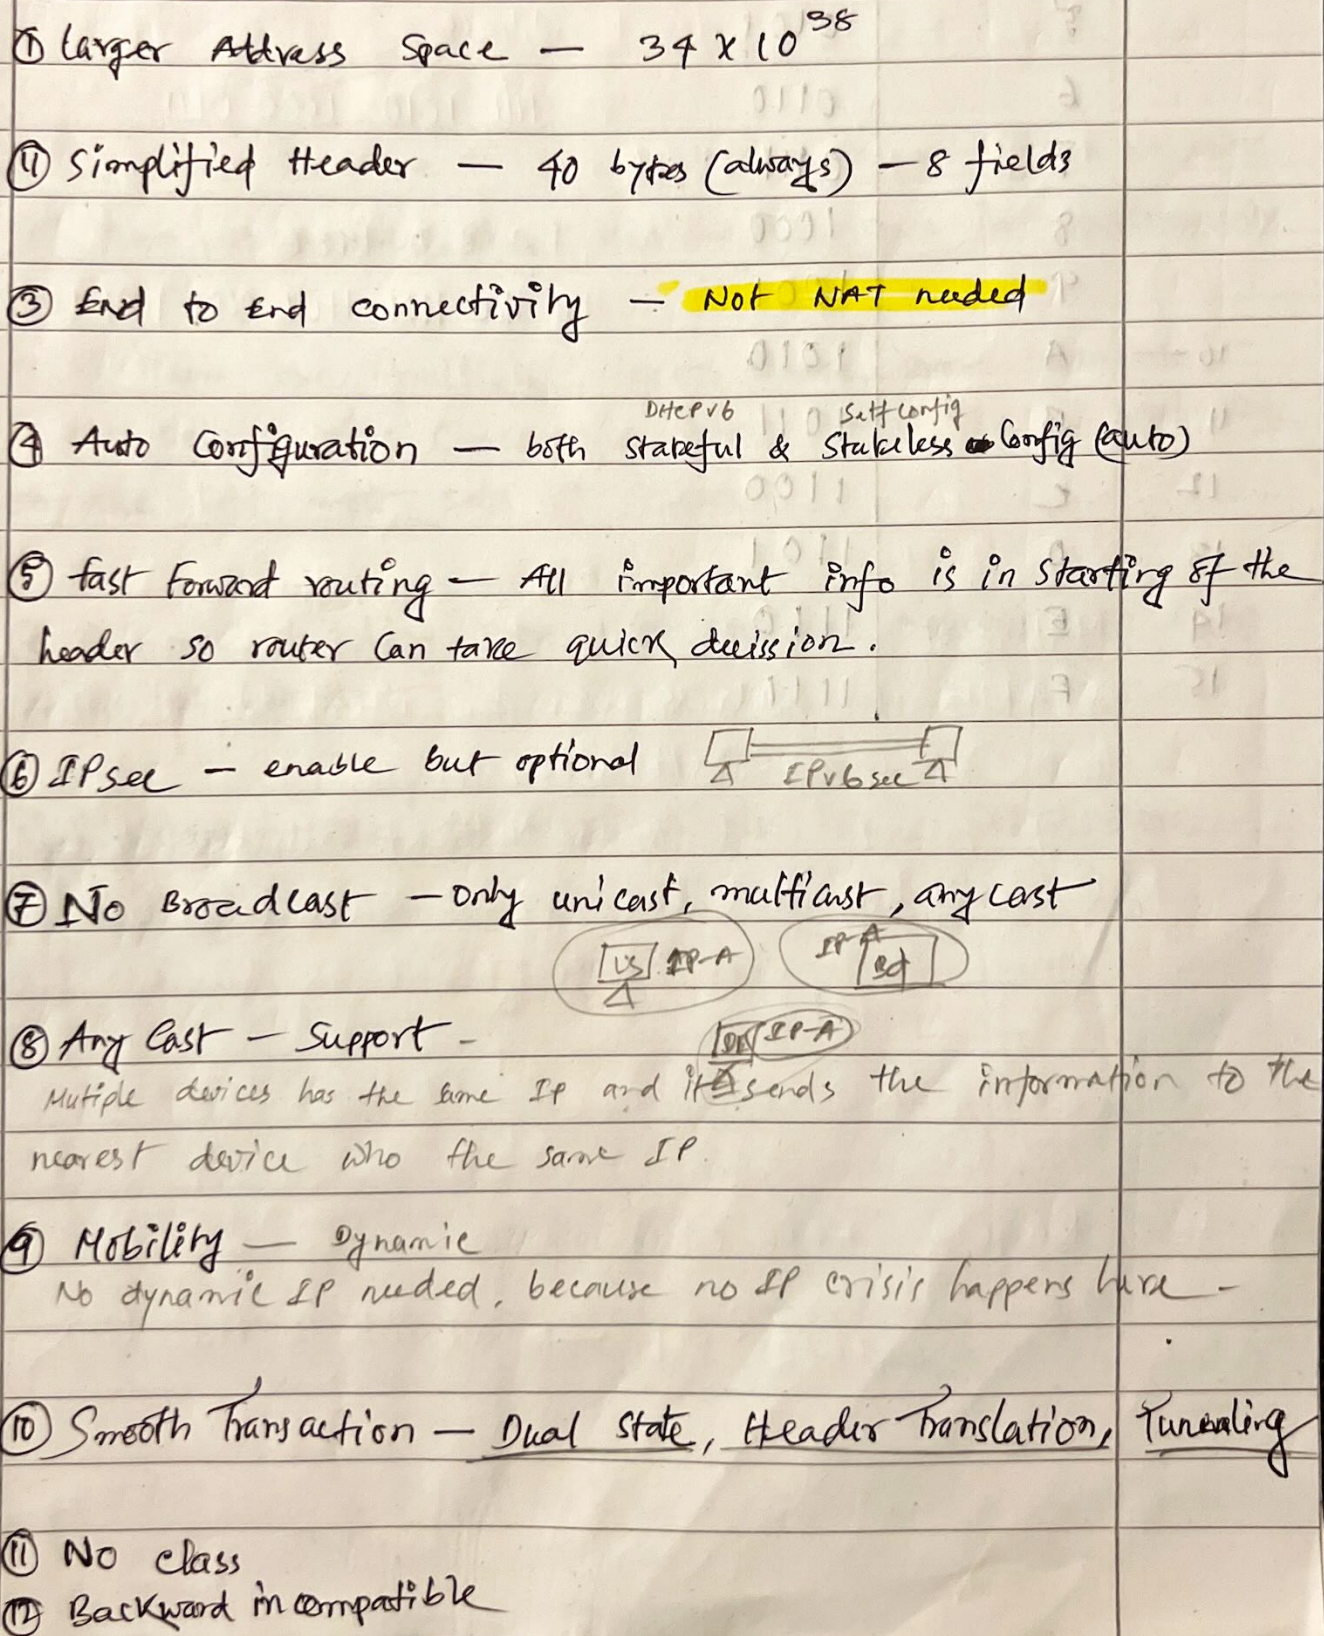 ① Larger Address Space — 34 x 10^38
⑪ Simplified Header — 40 bytes (always) — 8 fields
③ End to End connectivity — Not NAT needed
DHCPv6 Self config
④ Auto Configuration — both Stateful & Stateless Config (auto)
⑤ fast forward routing — All important info is in starting of the
header so router can take quick decission.
⑥ IPsec — enable but optional
IPv6sec
⑦ No Broadcast — Only unicast, multicast, anycast
US IP-A IP-A Bd
⑧ Any Cast — Support - IP-A
Mutiple devices has the same IP and it sends the information to the
nearest device who the same IP.
⑨ Mobility — Dynamic
No dynamic IP needed, because no IP crisis happens here -
⑩ Smooth Transaction — Dual State, Header Translation, Tunnaling
⑪ No class
⑫ Backward incompatible